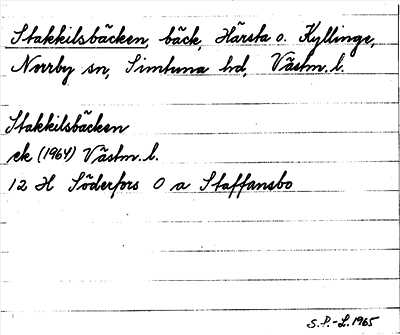 Stakkilsbäcken, bäck, Härsta o. Kyllinge,
Norrby sn, Simtuna hd, Västm. l.
Stakkilsbäcken
ek (1964) Västm. l.
12 H Söderfors O a Staffansbo
S.P.-L. 1965